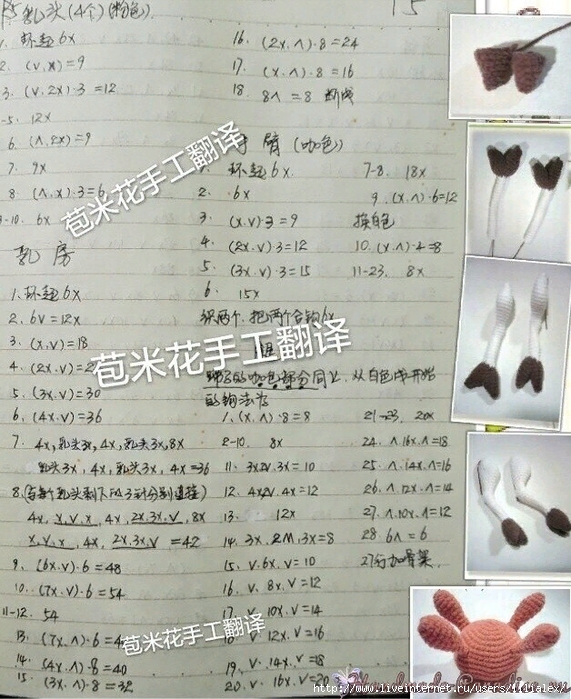 乳头(4个)(粉色)
15
1. 环起6x
2. (v,x)=9
3. (v,2x)·3=12
-5. 12x
6. (Λ,2x)=9
7. 9x
8. (Λ.x)·3=6
-10. 6x
乳房
1.环起6x
2. 6v=12x
3. (x,v)=18
4. (2x.v)=2
5. (3x.v)=30
6. (4x.v)=36
7. 4x,乳头3x,4x,乳头3x,8x
乳头3x,4x,乳头3x,4x=36
4x,x.v.x,4x,2x.3x.v,8x
x.v.x,4x,2x.3x.v=42
9. (6x.v)·6=48
10. (7x.v)·6=54
11-12. 54
13. (7x.Λ)·6=4
14. (4x.Λ)·8=40
15. (3x.Λ)·8=32
16. (2x.Λ)·8=24
17. (x.Λ)·8=16
18. 8Λ=8 断线
臂(咖色)
环起6x.
2. 6x
3. (x.v)·3=9
4. (2x.v)3=12
5. (3x.v)·3=15
6. 15x
织两个,把两个合钩6x
7-8. 18x
9. (x.Λ)·6=12
换白色
10. (x.Λ)·4=8
11-23. 8x
腿
的咖色部分同上,从白色线开始
的钩法为
1.(x.Λ)·8=8
2-10. 8x
11. 3x2v.3x=10
12. 4x2v.4x=12
13. 12x
14. 3x.2M,3x=8
15. v.6x.v=10
16. v.8x.v=12
17. v.10x.v=14
18. v.12x.v=16
19. v.14x.v=18
20. v.16x.v=20
21-23. 20x
24. Λ.16x.Λ=18
25. Λ.14x.Λ=16
26. Λ.12x.Λ=14
27. Λ.10x.Λ=12
28. 6Λ=6
27行加骨架.
苞米花手工翻译
苞米花手工翻译
苞米花手工翻译
http://www.liveinternet.ru/users/lilialex/